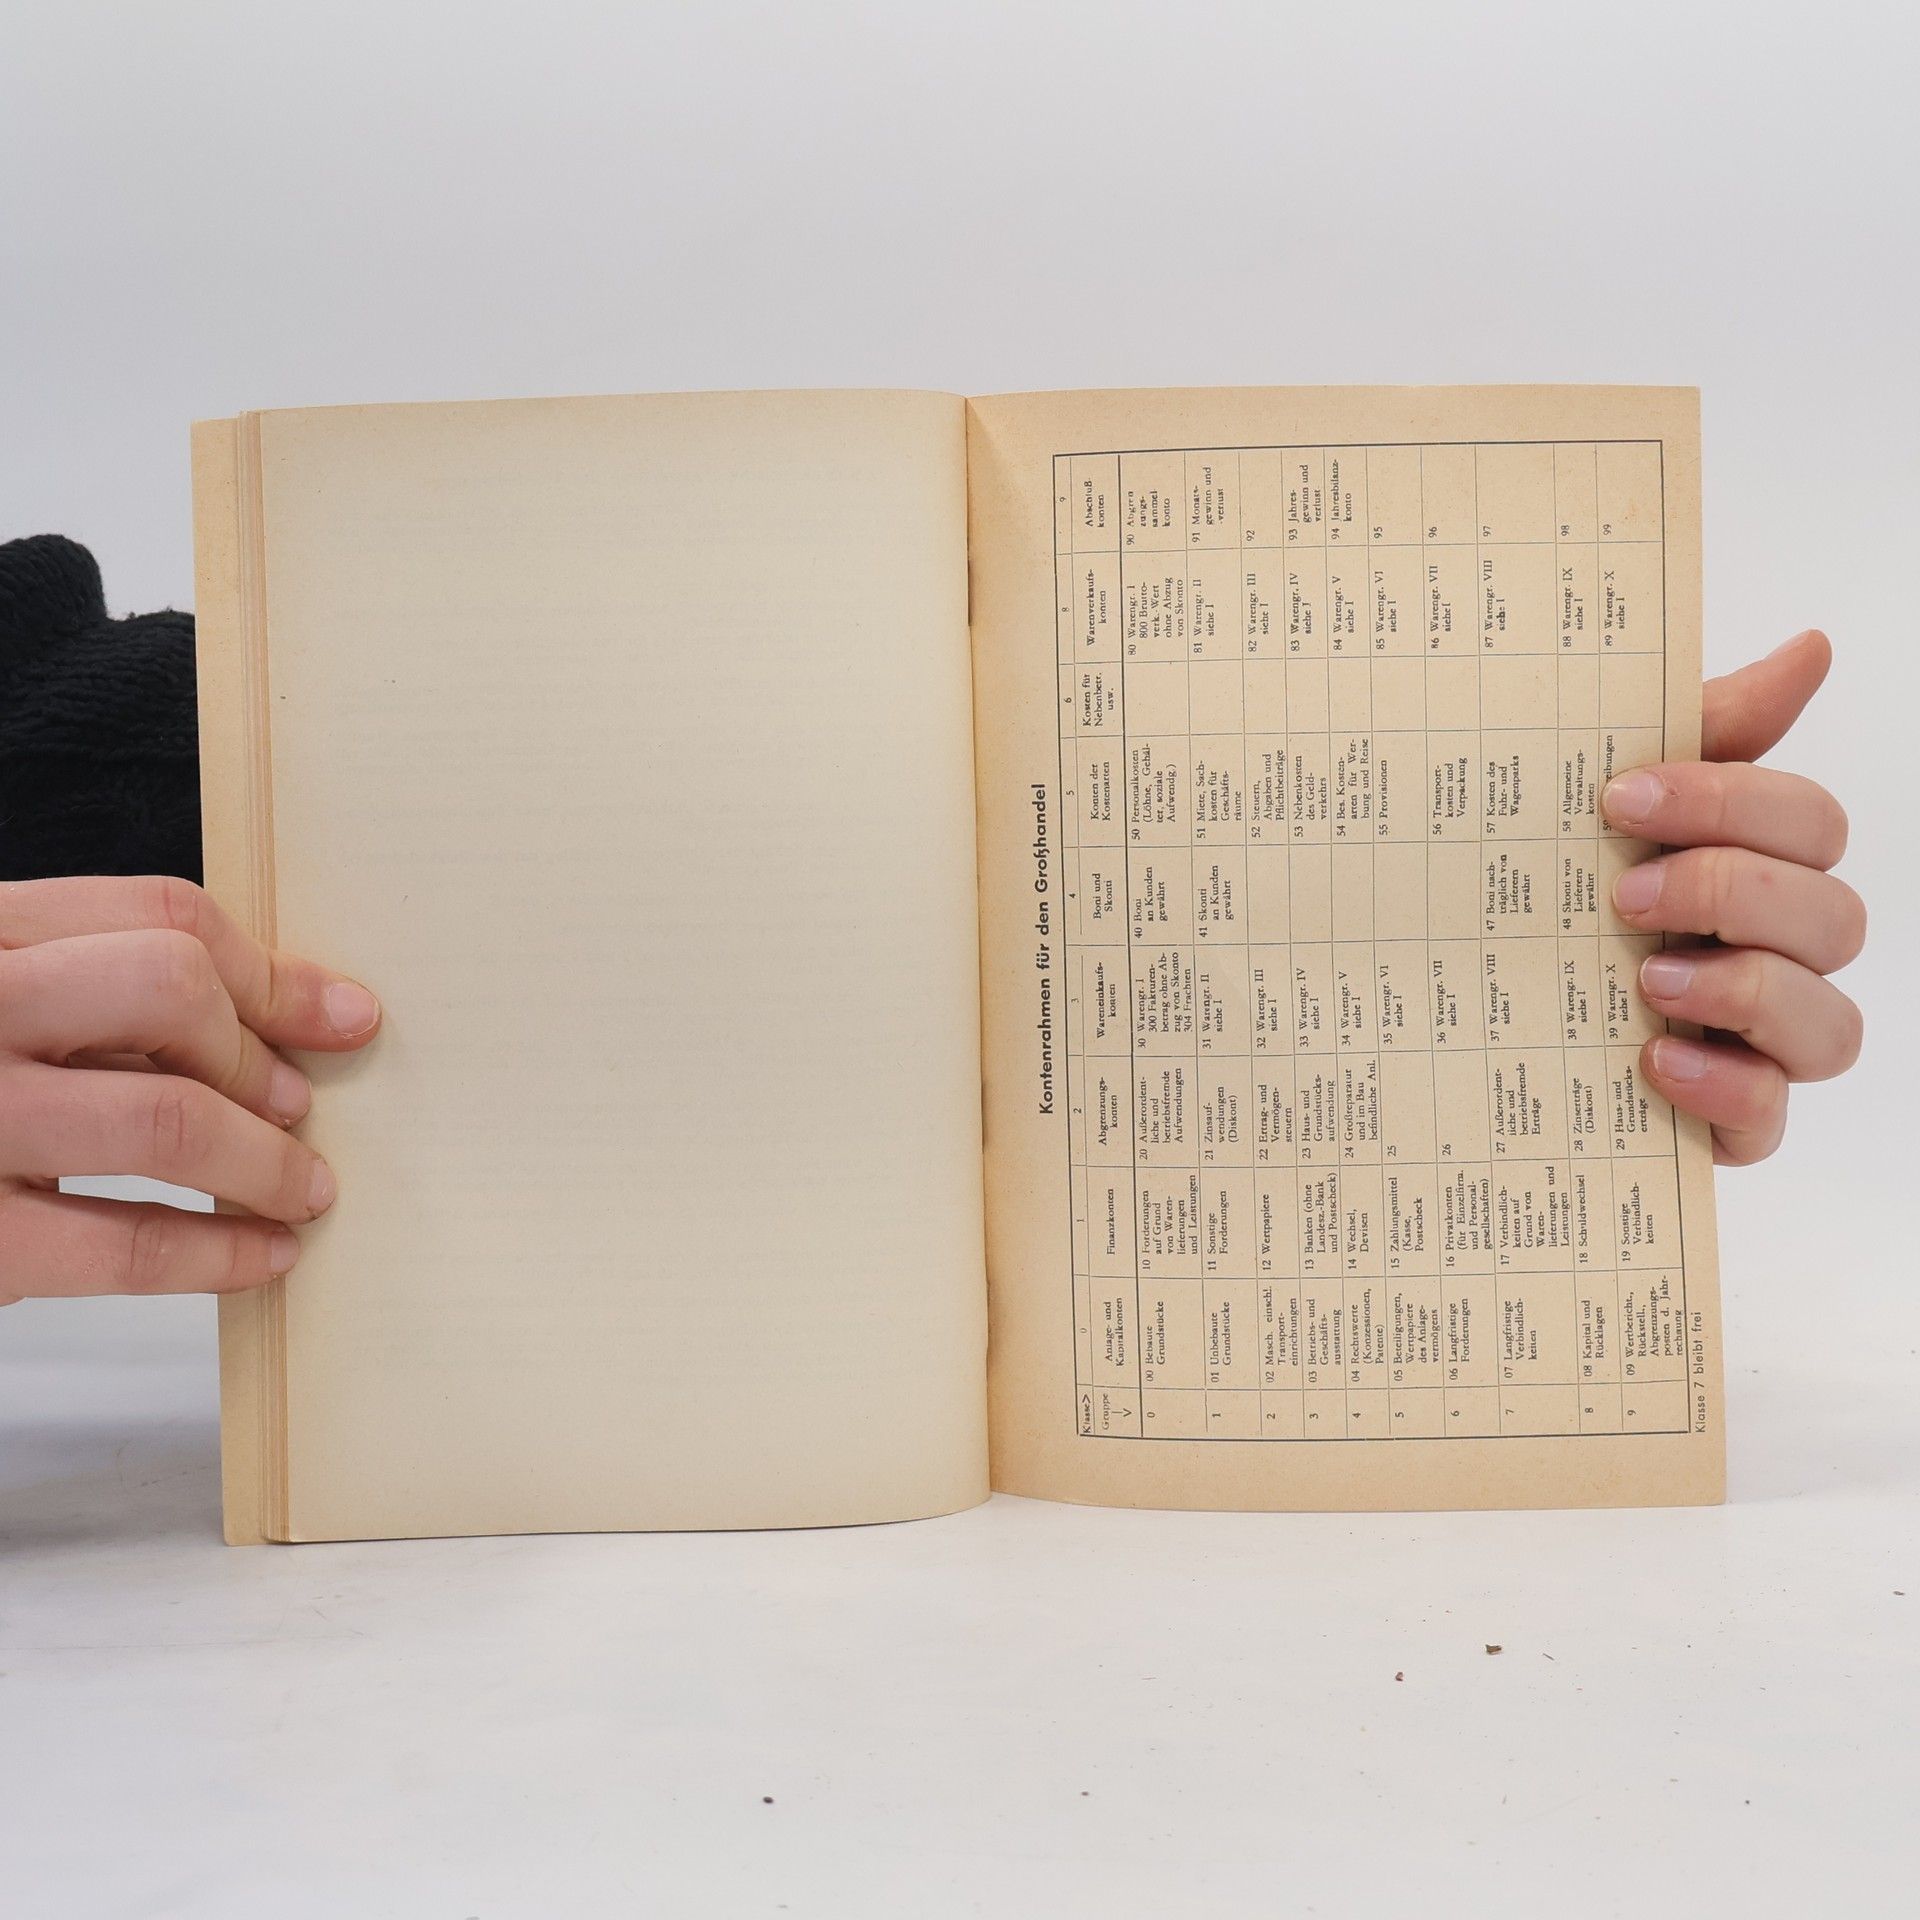 Kontenrahmen für den Großhandel
Klasse> 0 1 2 3 4 5 6 8 9
Gruppe
Anlage- und
Kapitalkonten
Finanzkonten
Abgrenzungs-
konten
Wareneinkaufs-
konten
Boni und
Skonti
Konten der
Kostenarten
Kosten für
Nebenbetr.
usw.
Warenverkaufs-
konten
Abschluß-
konten
0
00 Bebaute
Grundstücke
10 Forderungen
auf Grund
von Waren-
lieferungen
und Leistungen
20 Außerordent-
liche und
betriebsfremde
Aufwendungen
30 Warengr. I
300 Fakturen-
betrag ohne Ab-
zug von Skonto
304 Frachten
40 Boni
an Kunden
gewährt
50 Personalkosten
(Löhne, Gehäl-
ter, soziale
Aufwendg.)
80 Warengr. I
800 Brutto-
verk.-Wert
ohne Abzug
von Skonto
90 Abgren
zungs-
sammel
konto
1
01 Unbebaute
Grundstücke
11 Sonstige
Forderungen
21 Zinsauf-
wendungen
(Diskont)
31 Warengr. II
siehe I
41 Skonti
an Kunden
gewährt
51 Miete, Sach-
kosten für
Geschäfts-
räume
81 Warengr. II
siehe I
91 Monats-
gewinn und
-verlust
2
02 Masch. einschl.
Transport-
einrichtungen
12 Wertpapiere
22 Ertrag- und
Vermögen-
steuern
32 Warengr. III
siehe I
52 Steuern,
Abgaben und
Pflichtbeiträge
82 Warengr. III
siehe I
92
3
03 Betriebs- und
Geschäfts-
ausstattung
13 Banken (ohne
Landesz.-Bank
und Postscheck)
23 Haus- und
Grundstücks-
aufwendung
33 Warengr. IV
siehe I
53 Nebenkosten
des Geld-
verkehrs
83 Warengr. IV
siehe I
93 Jahres-
gewinn und
verlust
4
04 Rechtswerte
(Konzessionen,
Patente)
14 Wechsel,
Devisen
24 Großreparatur
und im Bau
befindliche Anl.
34 Warengr. V
siehe I
54 Bes. Kosten-
arten für Wer-
bung und Reise
84 Warengr. V
siehe I
94 Jahresbilanz-
konto
5
05 Beteiligungen,
Wertpapiere
des Anlage-
vermögens
15 Zahlungsmittel
(Kasse,
Postscheck
25
35 Warengr. VI
siehe I
55 Provisionen
85 Warengr. VI
siehe I
95
6
06 Langfristige
Forderungen
16 Privatkonten
(für Einzelfirm.
und Personal-
gesellschaften)
26
36 Warengr. VII
siehe I
56 Transport-
kosten und
Verpackung
86 Warengr. VII
siehe I
96
7
07 Langfristige
Verbindlich-
keiten
17 Verbindlich-
keiten auf
Grund von
Waren-
lieferungen und
Leistungen
27 Außerordent-
liche und
betriebsfremde
Erträge
37 Warengr. VIII
siehe I
47 Boni nach-
träglich von
Lieferern
gewährt
57 Kosten des
Fuhr- und
Wagenparks
87 Warengr. VIII
siehe I
97
8
08 Kapital und
Rücklagen
18 Schuldwechsel
28 Zinserträge
(Diskont)
38 Warengr. IX
siehe I
48 Skonti von
Lieferern
gewährt
58 Allgemeine
Verwaltungs-
kosten
88 Warengr. IX
siehe I
98
9
09 Wertbericht.,
Rückstell.,
Abgrenzungs-
posten d. Jahr-
rechnung
19 Sonstige
Verbindlich-
keiten
29 Haus- und
Grundstücks-
erträge
39 Warengr. X
siehe I
59 eibungen
89 Warengr. X
siehe I
99
Klasse 7 bleibt frei